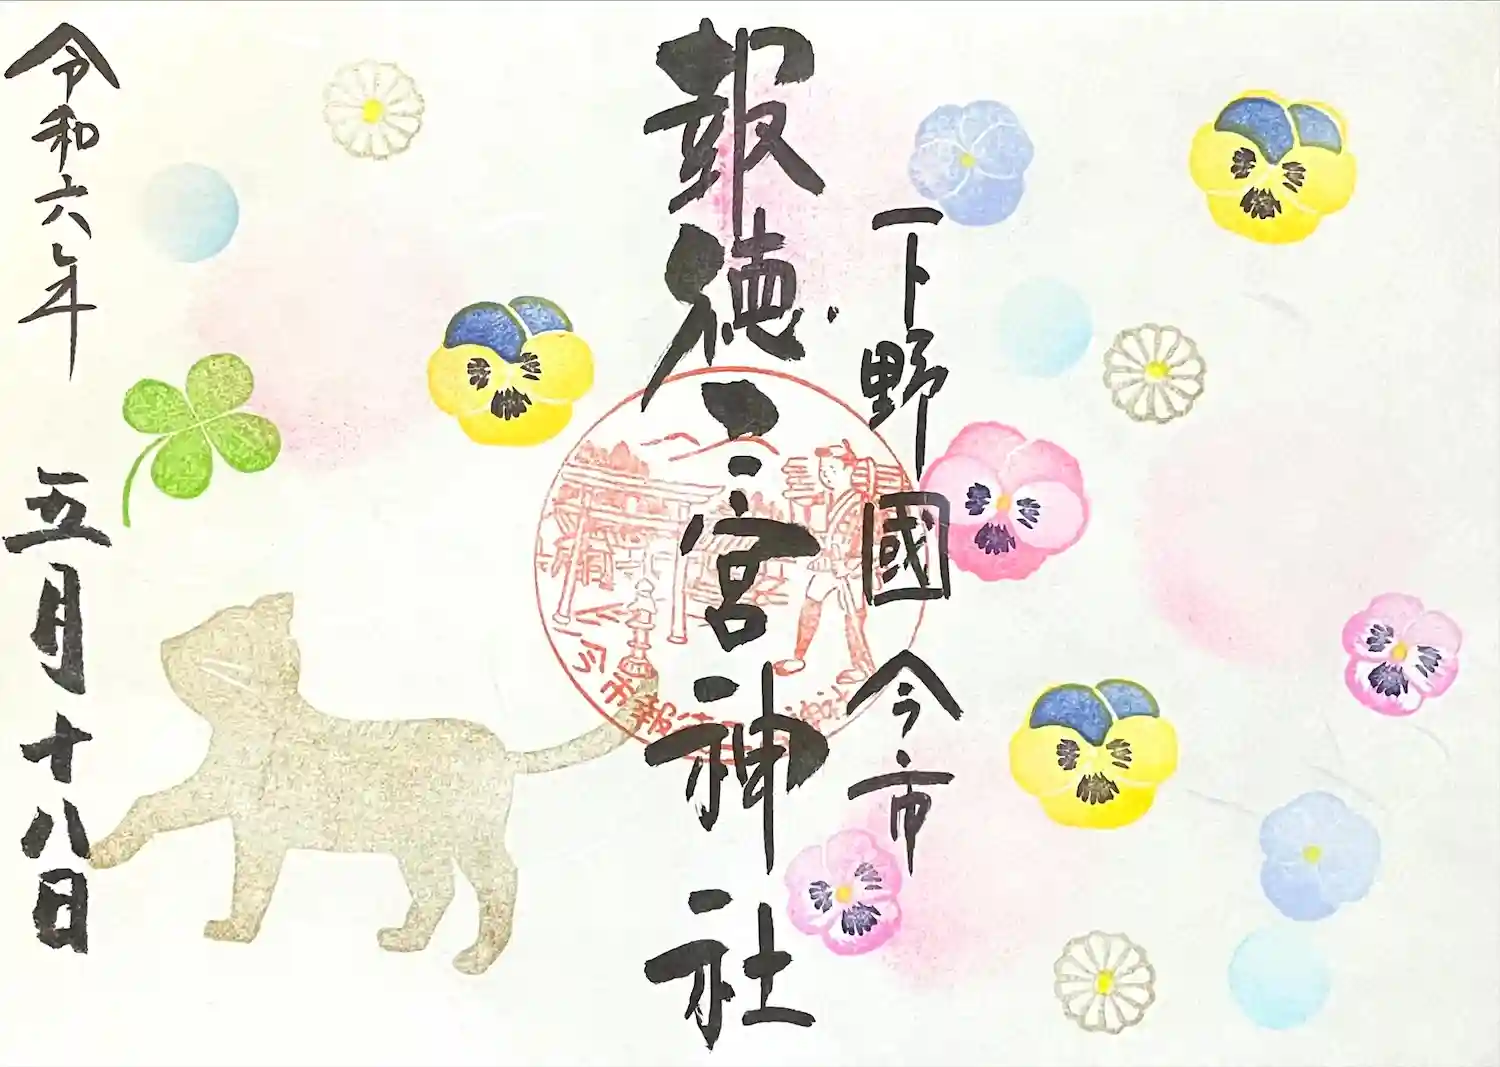 下野國 今市
報徳二宮神社
令和六年 五月十八日
今市報徳二宮神社